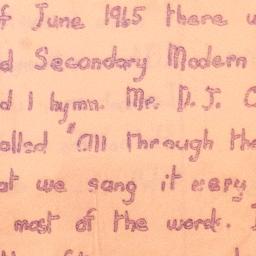 f June 1965 there w
d Secondary Modern
d 1 hymn. Mr. D. J. C
alled "All through the
at we sang it very
most of the words. I